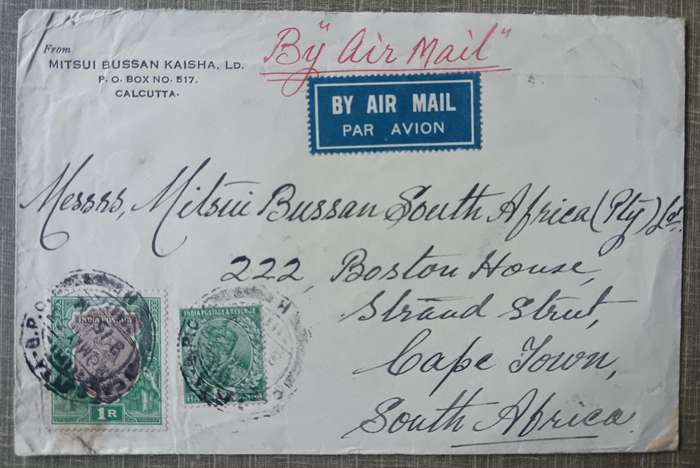 From
MITSUI BUSSAN KAISHA, LD.
P. O. BOX NO. 517.
CALCUTTA.
By "Air Mail"
BY AIR MAIL
PAR AVION
Messrs, Mitsui Bussan South Africa (Pty) Ld.
222, Boston House,
Strand Street,
Cape Town,
South Africa.
INDIA POSTAGE
1 R
INDIA POSTAGE & REVENUE